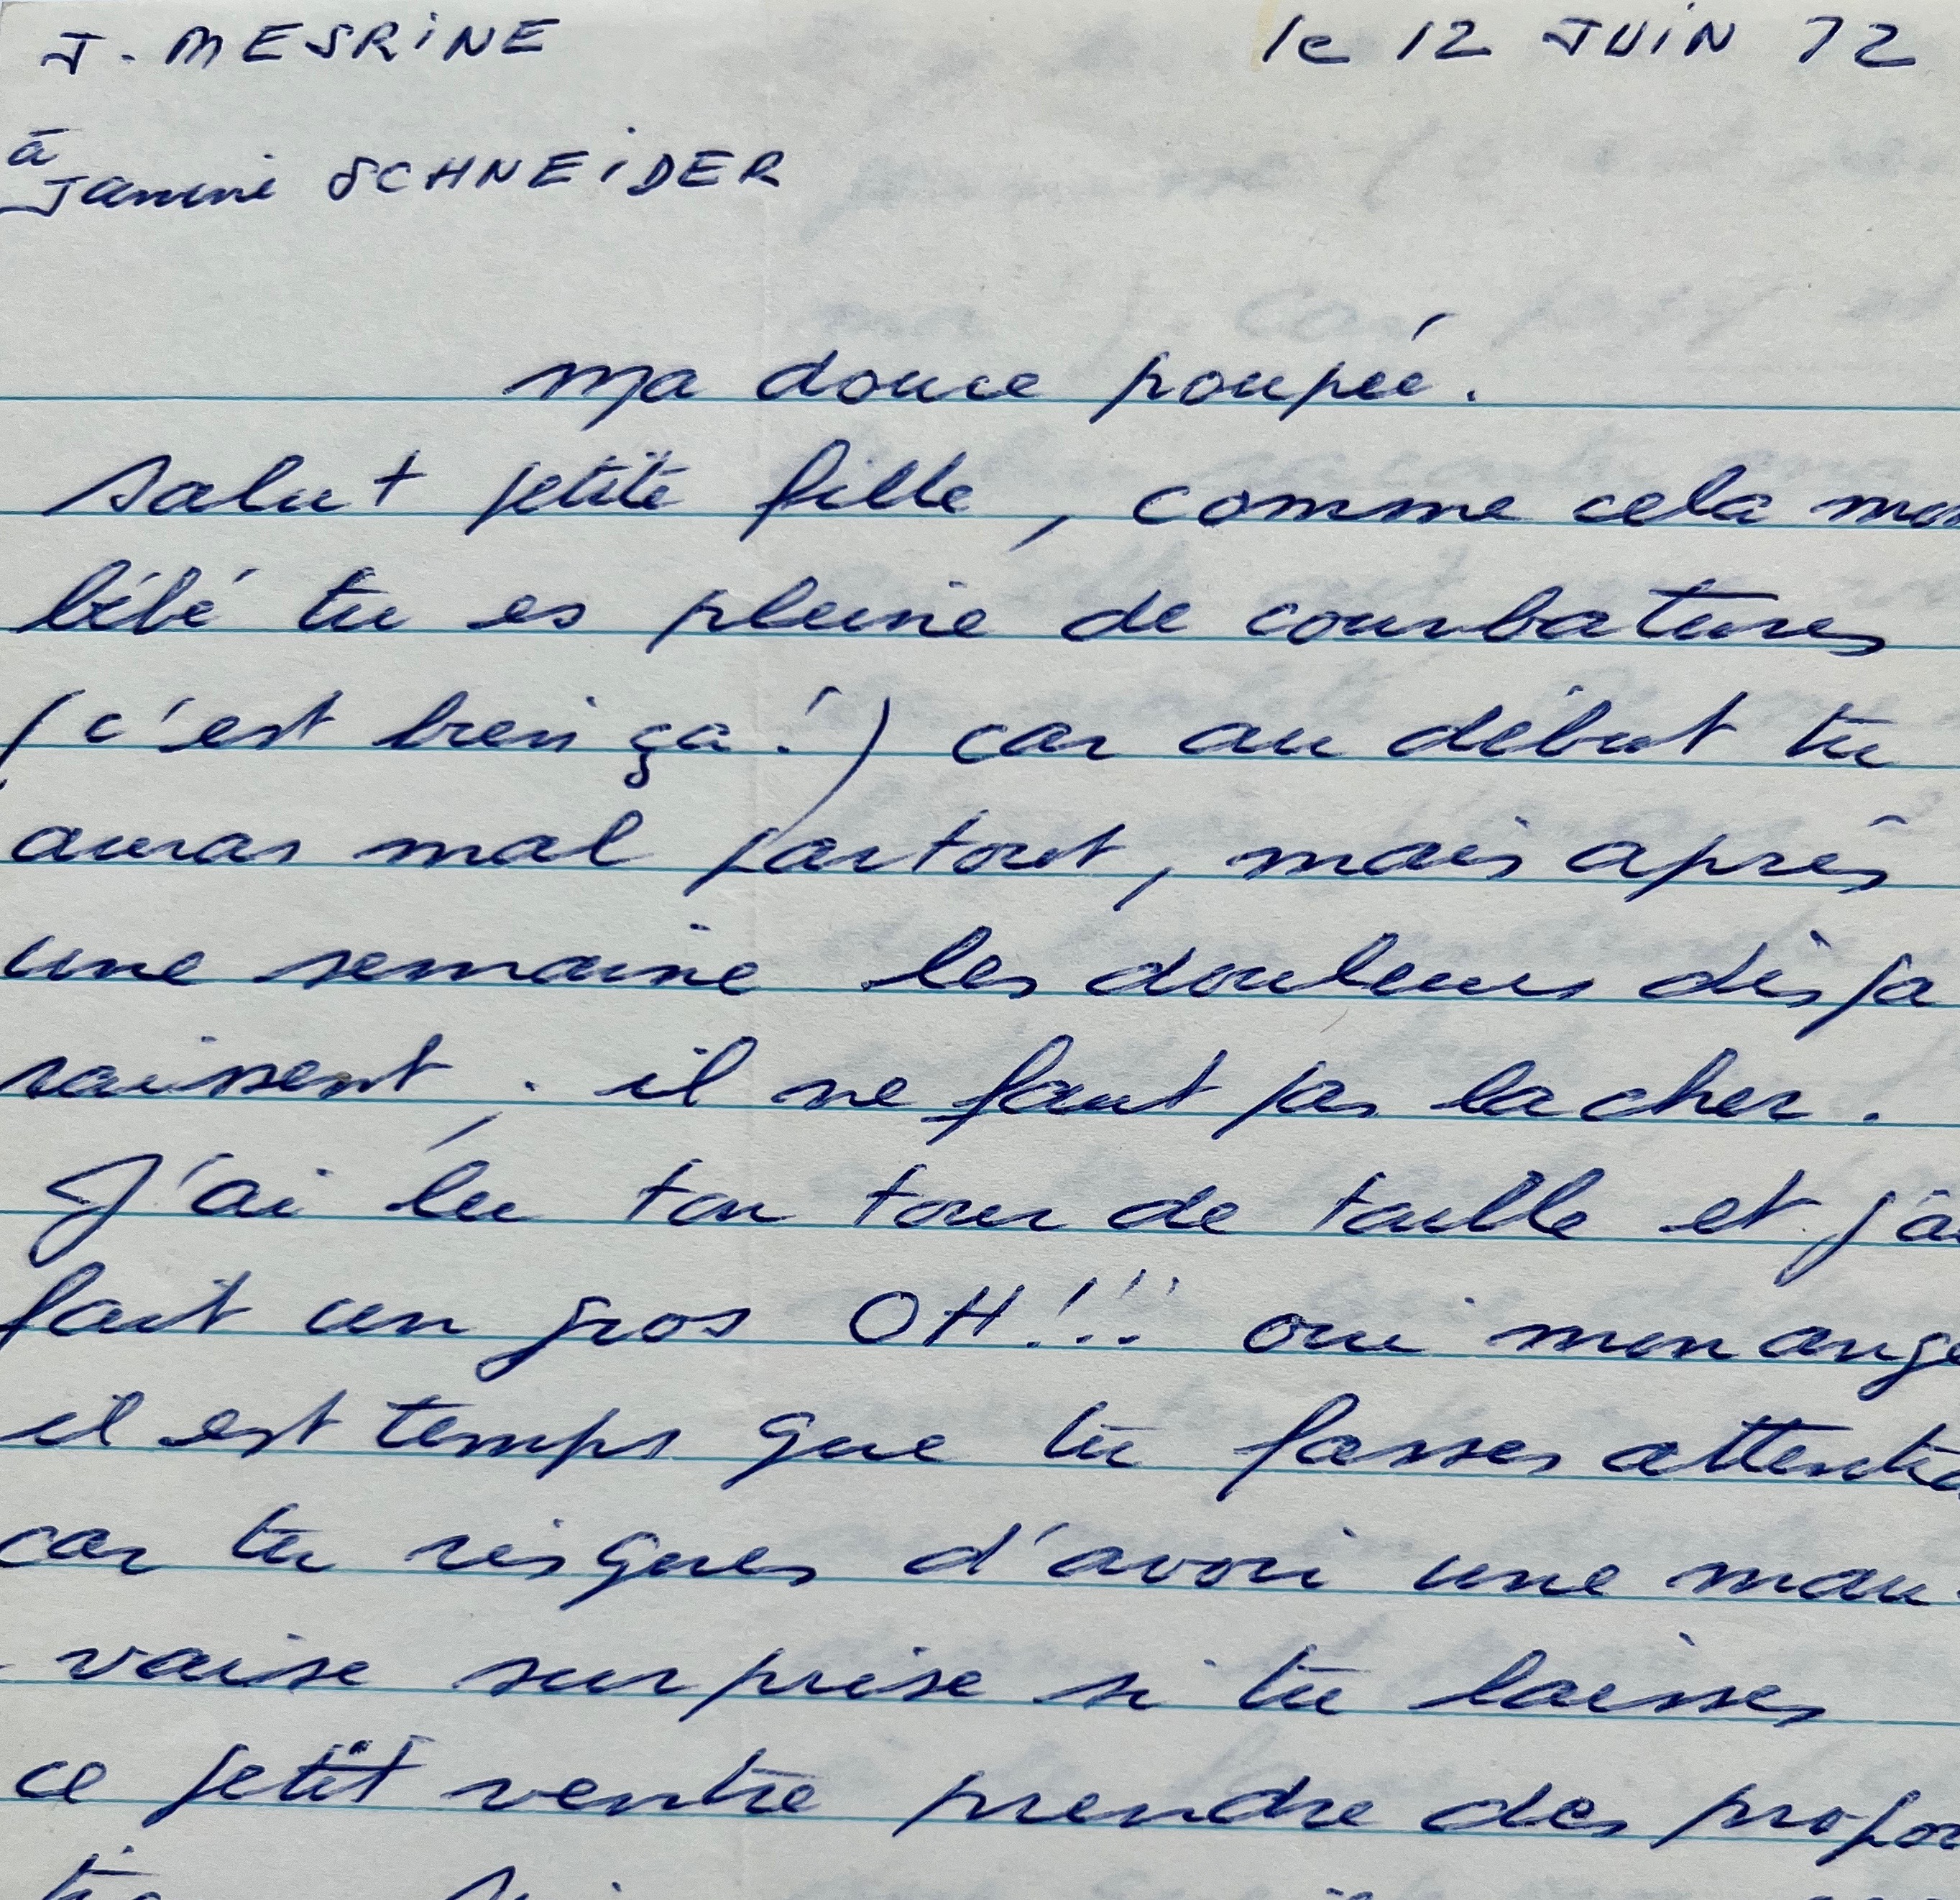 J. MESRINE le 12 JUIN 72
à
Janine SCHNEIDER
ma douce poupée.
Salut petite fille, comme cela mon
bébé tu es pleine de courbatures
(c'est bien ça!) car au début tu
auras mal partout, mais après
une semaine les douleurs dispa
raissent, il ne faut pas lacher.
J'ai lu ton tour de taille et j'ai
fait un gros OH!!! oui mon ange
il est temps que tu fasses attentio
car tu risques d'avoir une mau-
vaise surprise si tu laisses
ce petit ventre prendre des propor